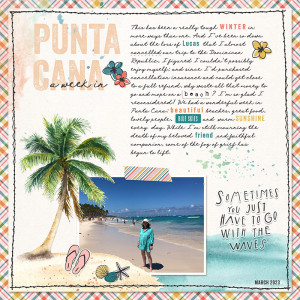 PUNTA
CANA
a week in
This has been a really tough WINTER in
more ways than one. And I've been so down
about the loss of Lucas that I almost
cancelled our trip to the Dominican
Republic. I figured I couldn't possibly
enjoy myself, and since I'd purchased
cancellation insurance and could get close
to a full refund, why waste all that money to
go and mope on a beach? I'm so glad I
reconsidered! We had a wonderful week in
Punta Cana: beautiful beaches, great food,
lovely people, BLUE SKIES and warm SUNSHINE
every day. While I'm still mourning the
death of my beloved friend and faithful
companion, some of the fog of grief has
begun to lift.
SOMETIMES
YOU JUST
HAVE TO GO
WITH THE
WAVES
MARCH 2023